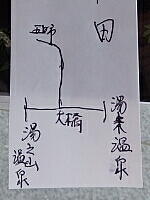 田
湯来温泉
大橋
湯之山温泉